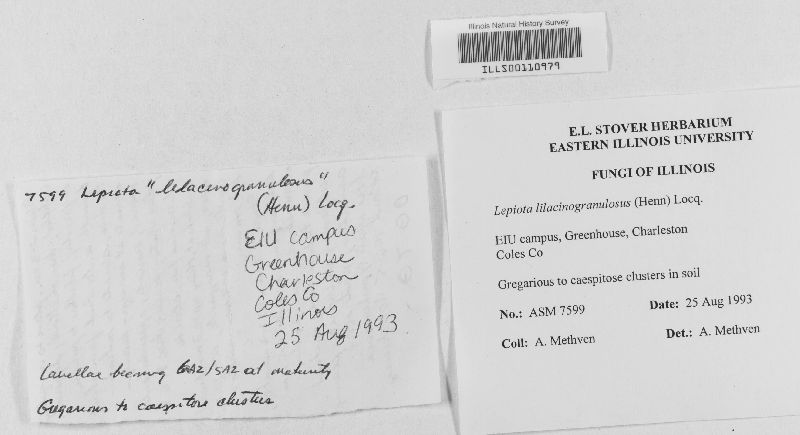 Illinois Natural History Survey
ILLS00110979
E.L. STOVER HERBARIUM
EASTERN ILLINOIS UNIVERSITY
FUNGI OF ILLINOIS
Lepiota lilacinogranulosus (Henn) Locq.
EIU campus, Greenhouse, Charleston
Coles Co
Gregarious to caespitose clusters in soil
No.: ASM 7599 Date: 25 Aug 1993
Coll: A. Methven Det.: A. Methven
7599 Lepiota "lilacinogranulosus"
(Henn) Locq.
EIU campus
Greenhouse
Charleston
Coles Co
Illinois
25 Aug 1993
Lamellae becoming 6A2/5A2 at maturity
Gregarious to caespitose clusters